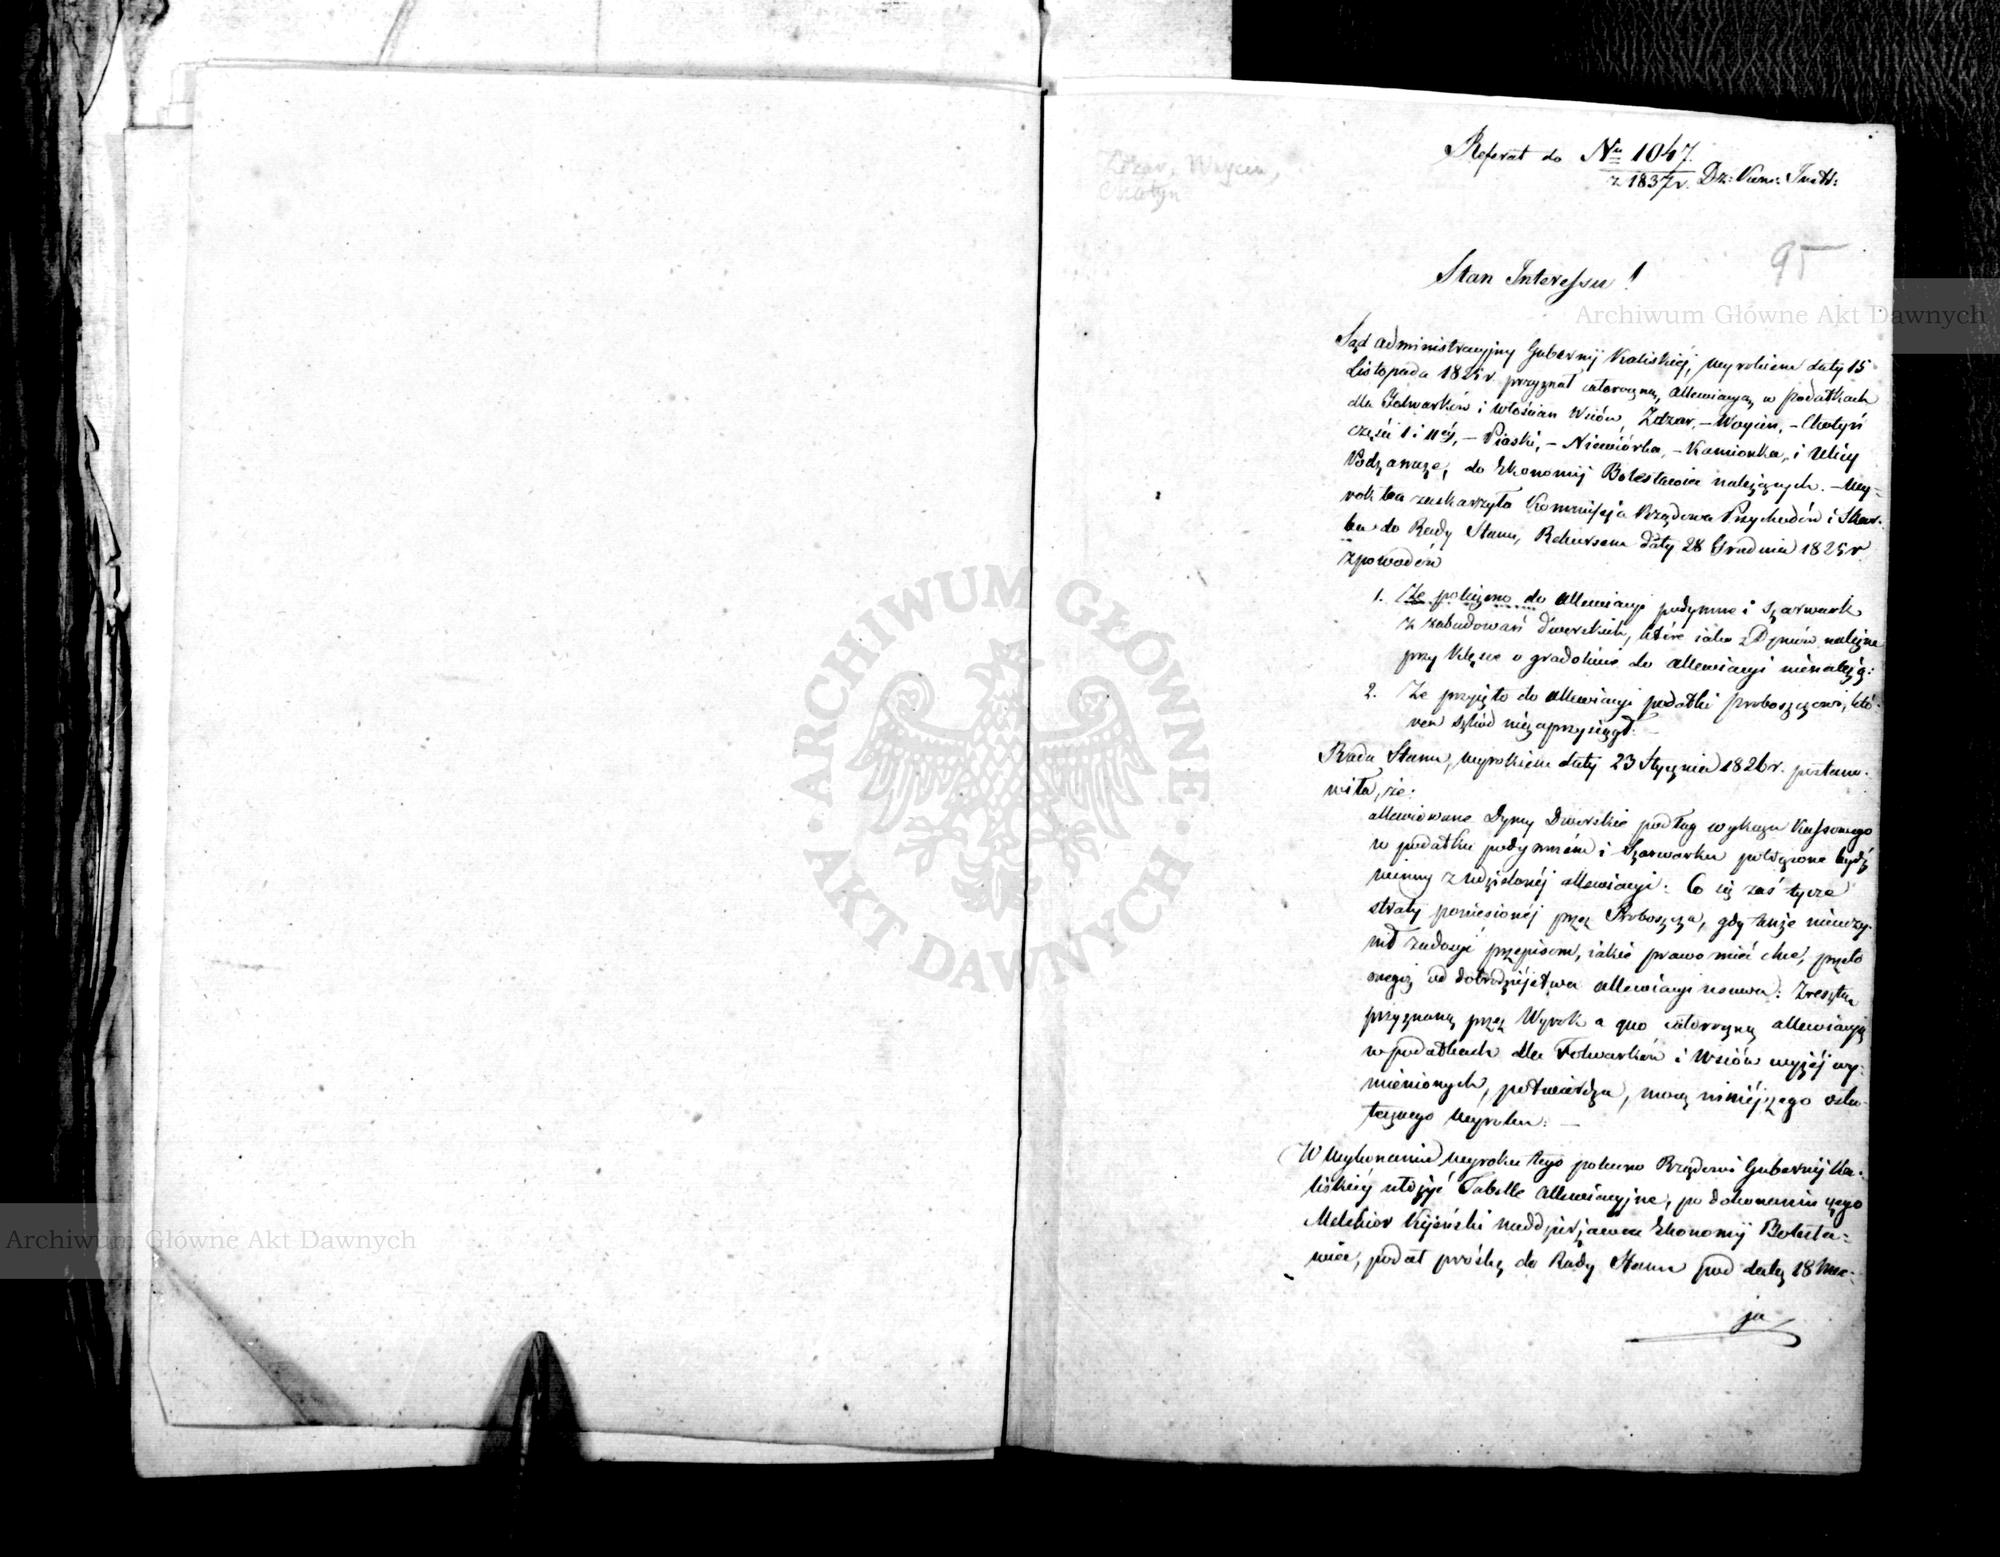 Zdżar, Woycin,
Chotyń
Referat do Nru 1047.
z 1837 r. Dz: Kom: Instr:
95
Stan Interessu!
Sąd administracyjny Gubernij Kaliskiéj, wyrokiem daty 15
Listopada 1825 r. przyznał całoroczną allewiacyą w podatkach
dla Folwarków i włościan Wsiów, Zdzar, – Woycin, – Chotyń
części I i IIéj, – Piaski, – Niewiórka, – Kamionka, i Ulicy
Podzamcze, do Ekonomij Bolesławiec należących. – Wy-
rok ten zaskarzyła Kommissja Rządowa Przychodów i Skar-
bu do Rady Stanu, Rekursem daty 28 Grudnia 1825 r
z powodów
1. Że policzono do allewiacyi podymne i szarwark
z zabudowań dworskich, które jako z Dymów należne
przy klęsce o gradobicie do allewiacyi nienależą:
2. Że przyjęto do allewiacyi podatki proboszczowi, któ-
ren szkód niezaprzysiągł. –
Rada Stanu, wyrokiem daty 23 Stycznia 1826 r. postano-
wiła, że:
allewiowane Dymy Dworskie podług wykazu Kassowego
w podatku podymném i Szarwarku potrącone bydź
winny z udzielonéj allewiacyi: Co się zaś tycze
straty poniesionéj przez Proboszcza, gdy tenże nieuczy-
nił zadosyć przepisom, jakie prawo mieć chce, przeto
onegoż od dobrodziéjstwa allewiacyi usuwa: Zresztą
przyznaną przez Wyrok a quo całoroczną allewiacyą
w podatkach dla Folwarków i Wsiów wyżéj wy-
mienionych, potwierdza, mocą niniéjszego osta-
tecznego Wyroku. –
W Wykonaniu wyroku tego polecono Rządowi Gubernij Ka-
liskiéj ułożyć Tabelle Allewiacyjne, po dokonaniu czego
Melchior Kijeński naddzierżawca Ekonomij Bolesła-
wiec, podał prośbę do Rady Stanu pod datą 18 Ma-
ja
Archiwum Główne Akt Dawnych
Archiwum Główne Akt Dawnych
ARCHIWUM GŁÓWNE
AKT DAWNYCH